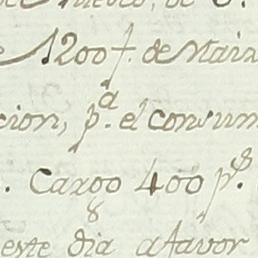 1200 f. de Maiz
cion, p.ª el consum
. Cargo 400 p.s
este dia a favor